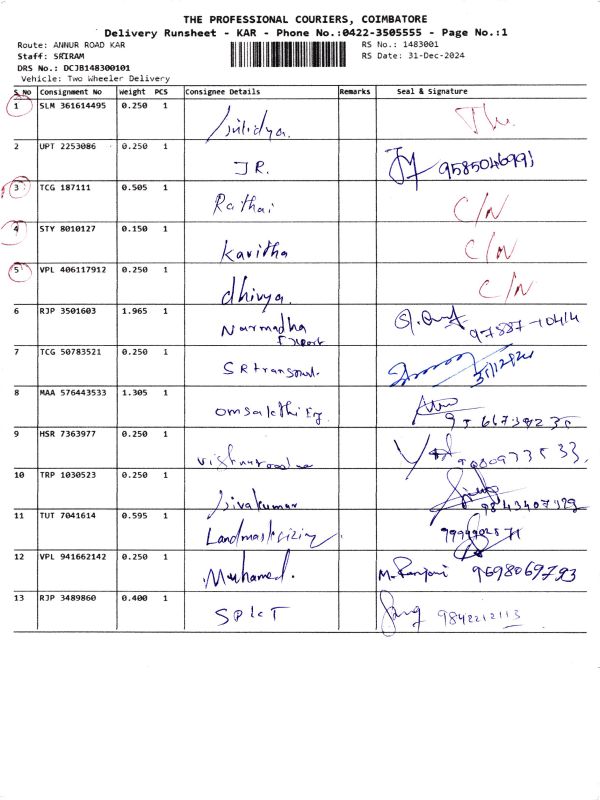 THE PROFESSIONAL COURIERS, COIMBATORE
Delivery Runsheet - KAR - Phone No.:0422-3505555 - Page No.:1
Route: ANNUR ROAD KAR RS No.: 1483001
Staff: SRIRAM RS Date: 31-Dec-2024
DRS No.: DCJB148300101
Vehicle: Two Wheeler Delivery
S No Consignment No Weight PCS Consignee Details Remarks Seal & Signature
1 SLM 361614495 0.250 1
2 UPT 2253086 0.250 1 JR. 9585046991
3 TCG 187111 0.505 1 Rathai C/N
4 STY 8010127 0.150 1 Kavitha C/N
5 VPL 406117912 0.250 1 dhivya. C/N
6 RJP 3501603 1.965 1 Narmadha 97887-10414
7 TCG 50783521 0.250 1 SR transport. 31/12/24
8 MAA 576443533 1.305 1 omsakthi Eg
9 HSR 7363977 0.250 1
10 TRP 1030523 0.250 1 Sivakumar
11 TUT 7041614 0.595 1
12 VPL 941662142 0.250 1 Muhamed. M. Ranjani 9698069793
13 RJP 3489860 0.400 1 9842212113